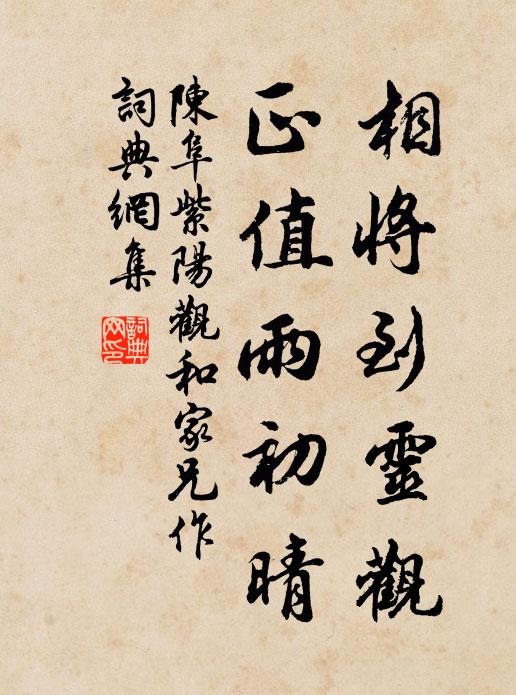 相將到靈觀
正值雨初晴
陳阜紫陽觀和家兄作
詞典網集
詞典網印